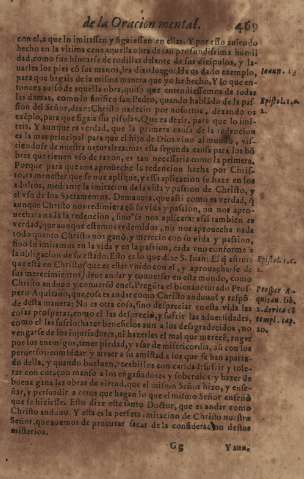 de la Oracion mental. 469
con el, a que lo imitassen y siguiessen en ellas. Y por esso auiendo
hecho en la vltima cena aquella obra de tan profundissima humil
dad, como fue hincarse de rodillas delante de sus dicipulos, y la-
uarles los pies cõ sus manos, les dixo luego: he os dado exemplo,
para que hagais de la misma manera que yo he hecho. Y lo que en-
tonces auisó de aquella obra, quiso que entendiessemos de todas
las demas, como lo sinifica san Pedro, quando hablãdo de la pas
sion del Señor, dize: Christo padecio por nosotros, dexando os
exẽplo, para que sigais sus pisadas. Que es dezir, para que lo imi-
teis. Y aunque es verdad, que la primera causa de la redencion
es la mas principal para que el hijo de Dios vino al mundo, vis-
tiendose de nuestra naturaleza: mas esta segunda causa para los hõ-
bres que tienen vso de razon, es tan necessaria como la primera.
Porque para que aproueche la redencion hecha por Chris-
to, es menester que se nos aplique, y esta aplicacion se haze en los
adultos, mediante la imitacion de la vida y passion de Christo, y
el vso de los Sacramentos. De manera, que assi como es verdad, q̃
aunque Christo nos redimiera cõ su vida y passion, no nos apro-
uechara nada la redencion, sino se nos aplicara: assi tambien es
verdad, que aunque estamos redemidos, no nos aprouecha nada
todo quanto Christo nos ganó, y merecio con su vida y passion,
sino lo imitamos en la vida y en la passion, cada vno conforme a
la obligacion de su estado. Esto es lo que dize S. Iuan: El q̃
que està en Christo, que es estar vnido con el, y aprouecharse de
sus merecimientos, deue andar y conuersar en este mundo, como
Christo anduuo y conuersó en el. Pregũta el bienauẽturado Prospero
Aquitano, que cosa es andar como Christo anduuo? y respõ
de desta manera: No es otra cosa, sino despreciar en esta vida las
cosas prosperas, como el las despreciò, y sufrir las aduersidades,
como el las sufrio: hazer beneficios aun a los desagradecidos, no
vengarse de los injuriadores, ni hazerles el mal que merecẽ, rogar
por los enemigos, tener piedad, y vsar de misericordia, aũ con los
peruersos: combidar y atraer a su amistad a los que se han aparta-
do della, y quando bueluen, recebirlos con caridad: sufrir y tole-
rar con coraçon manso a los engañadores y soberuios: y hazer de
buena gana las obras de virtud, que el mismo Señor hizo, y ense-
ñar, y persuadir a otros que hagan lo que el mismo Señor enseñó
que se hiziesse. Esto dize este santo Doctor, que es andar como
Christo anduuo. Y esta es la perfeta imitacion de Christo nuestro
Señor, que auemos de procurar sacar de la consideraciõ destos
misterios.
Gg Y aun,
Ioann. 13
Epist. 1. c.
2.
Epist. 1. c.
2.
Prosper A-
quitan. lib.
2. de vita cõ
templ. cap.